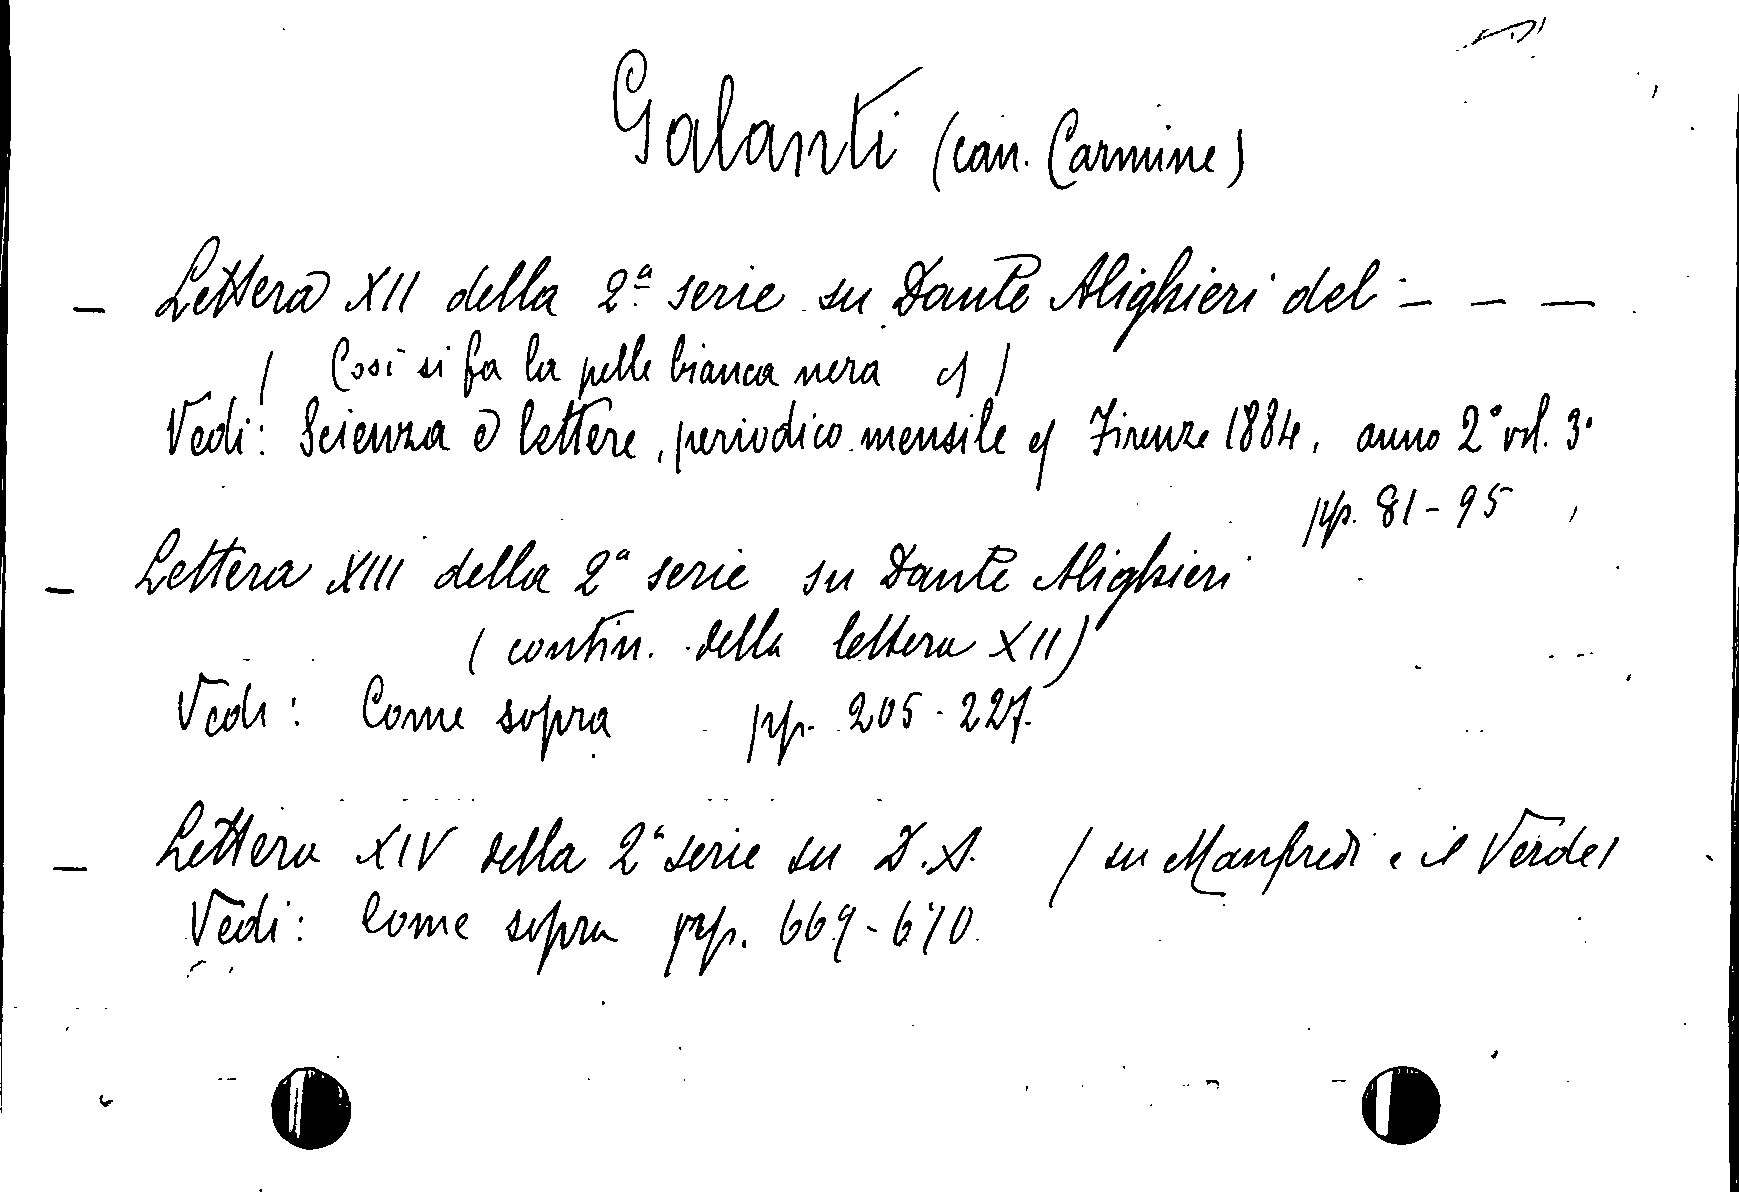 Galanti (can. Carmine)
— Lettera XII della 2ª serie su Dante Alighieri del — — —
( Così si fa la pelle bianca nera )
Vedi: Scienza e lettere, periodico mensile Firenze 1884, anno 2° vol. 3°
pp. 81-95
— Lettera XIII della 2ª serie su Dante Alighieri
(contin. della lettera XII)
Vedi: Come sopra pp. 205-227.
— Lettera XIV della 2ª serie su D. A. (su Manfredi e il Verde)
Vedi: Come sopra pp. 669-670